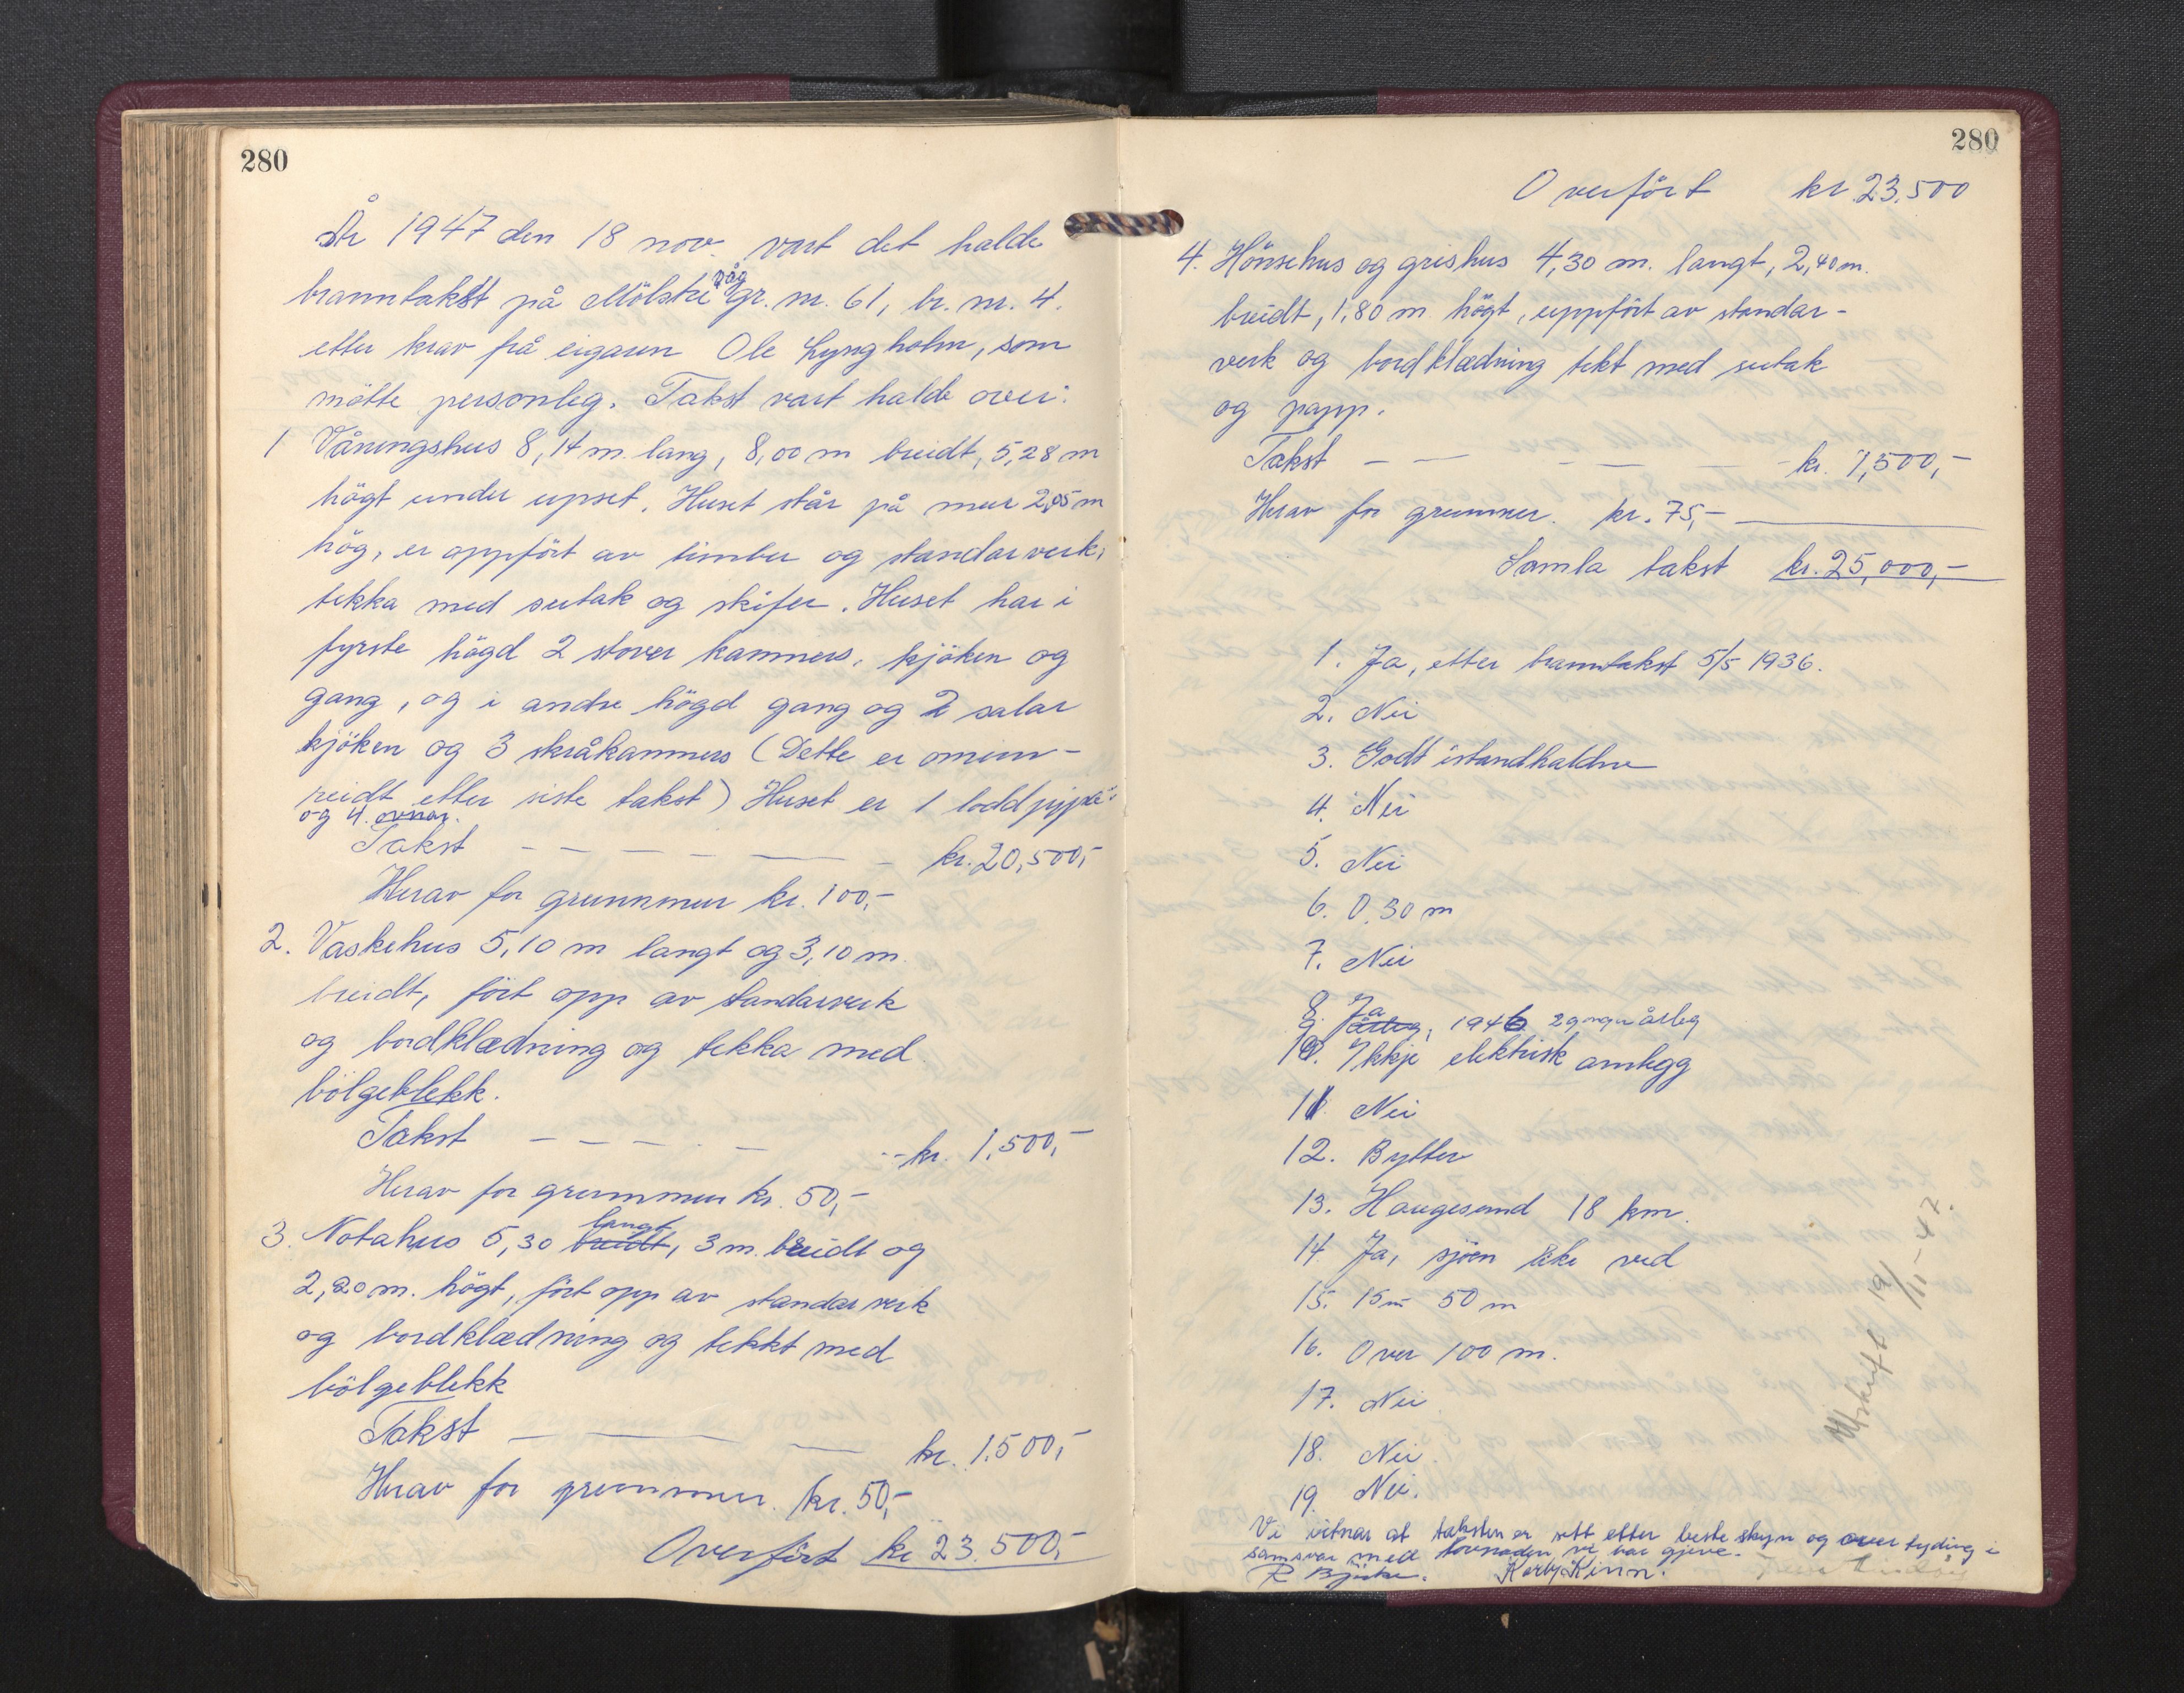 280
År 1947 den 18 nov. vart det halde
branntakst på Mölstrevåg gr. nr. 61, br. nr. 4.
etter krav frå eigaren Ole Lyngholm, som
mötte personleg. Takst vart halde over:
1 Våningshus 8,14 m. lang, 8,00 m breidt, 5,28 m
högt under upset. Huset står på mur 2,05 m
hög, er oppfört av timber og standarverk,
tekka med sutak og skifer. Huset har i
fyrste högd 2 stover kammers, kjöken og
gang, og i andre högd gang og 2 salar
kjöken og 3 skråkammers (Dette er ominn-
reidt etter siste takst) Huset er 1 loddpipe
og 4. ovnar.
Takst — — — — — — kr. 20,500,-
Herav for grunnmur kr. 100,-
2. Vaskehus 5,10 m langt og 3,10 m.
breidt, fört opp av standarverk
og bordklædning og tekka med
bölgeblekk.
Takst — — — — — kr. 1.500,-
Herav for grunnmur kr. 50,-
3. Notahus 5,30 breidt langt, 3 m. breidt og
2,20 m. högt, fört opp av standarverk
og bordklædning og tekkt med
bölgeblekk
Takst — — — kr. 1.500,-
Herav for grunnmur. kr. 50,-
Overfört kr 23.500,-
280
Overfört kr. 23.500
4. Hönsehus og grishus 4,30 m. langt, 2,40 m.
breidt, 1,80 m högt, uppfört av standar-
verk og bordklædning tekt med sutak
og papp.
Takst — — — — — kr. 1,500,-
Herav for grunnmur. kr. 75,-
Samla takst kr. 25,000,-
1. Ja, etter branntakst 5/5 1936.
2. Nei
3. Godt istandhaldne
4. Nei
5. Nei
6. 0.30 m
7. Nei
8. Ja
9 årleg, 1946 2 gongar årleg
10. Ikkje elektrisk anlegg
11 Nei
12. Bytter
13. Haugesund 18 km.
14. Ja, sjöen like ved
15. 15 m 50 m
16. Over 100 m.
17. Nei
18. Nei
19. Nei.
Utskrift 19/11-47.
Vi vitnar at taksten er sett etter beste skyn og overtyding i
samsvar med lovnaden vi har gjeve.
R Bjerke. Karl J Kinn.